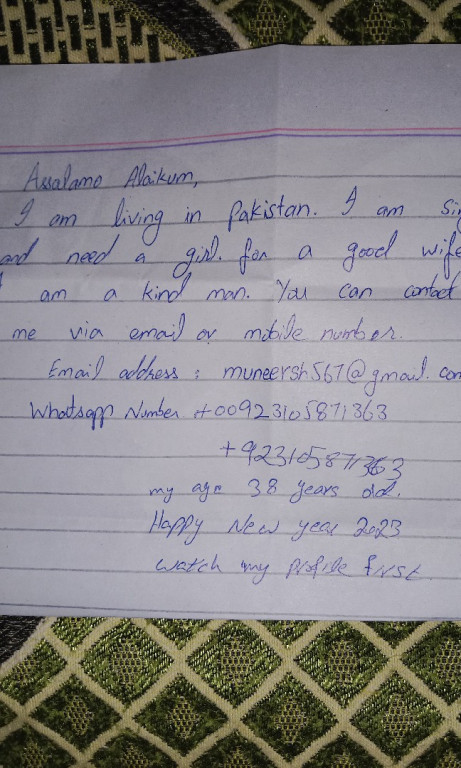 Assalamo Alaikum,
I am living in Pakistan. I am sin
and need a girl. for a good wife
I am a kind man. You can contact
me via email or mobile number.
Email address : muneersh567@gmail.com
Whatsapp Number +00923105871363
+923105871363
my age 38 years old.
Happy New year 2023
watch my profile first